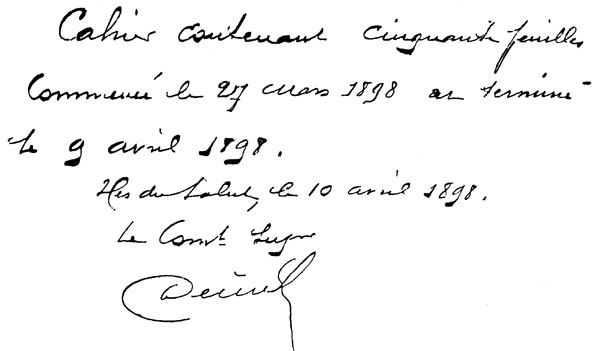 Cahier contenant cinquante feuilles
Commencé le 27 mars 1898 et terminé
le 9 avril 1898.
Iles du Salut, le 10 avril 1898.
Le Comt Supr
Deniel